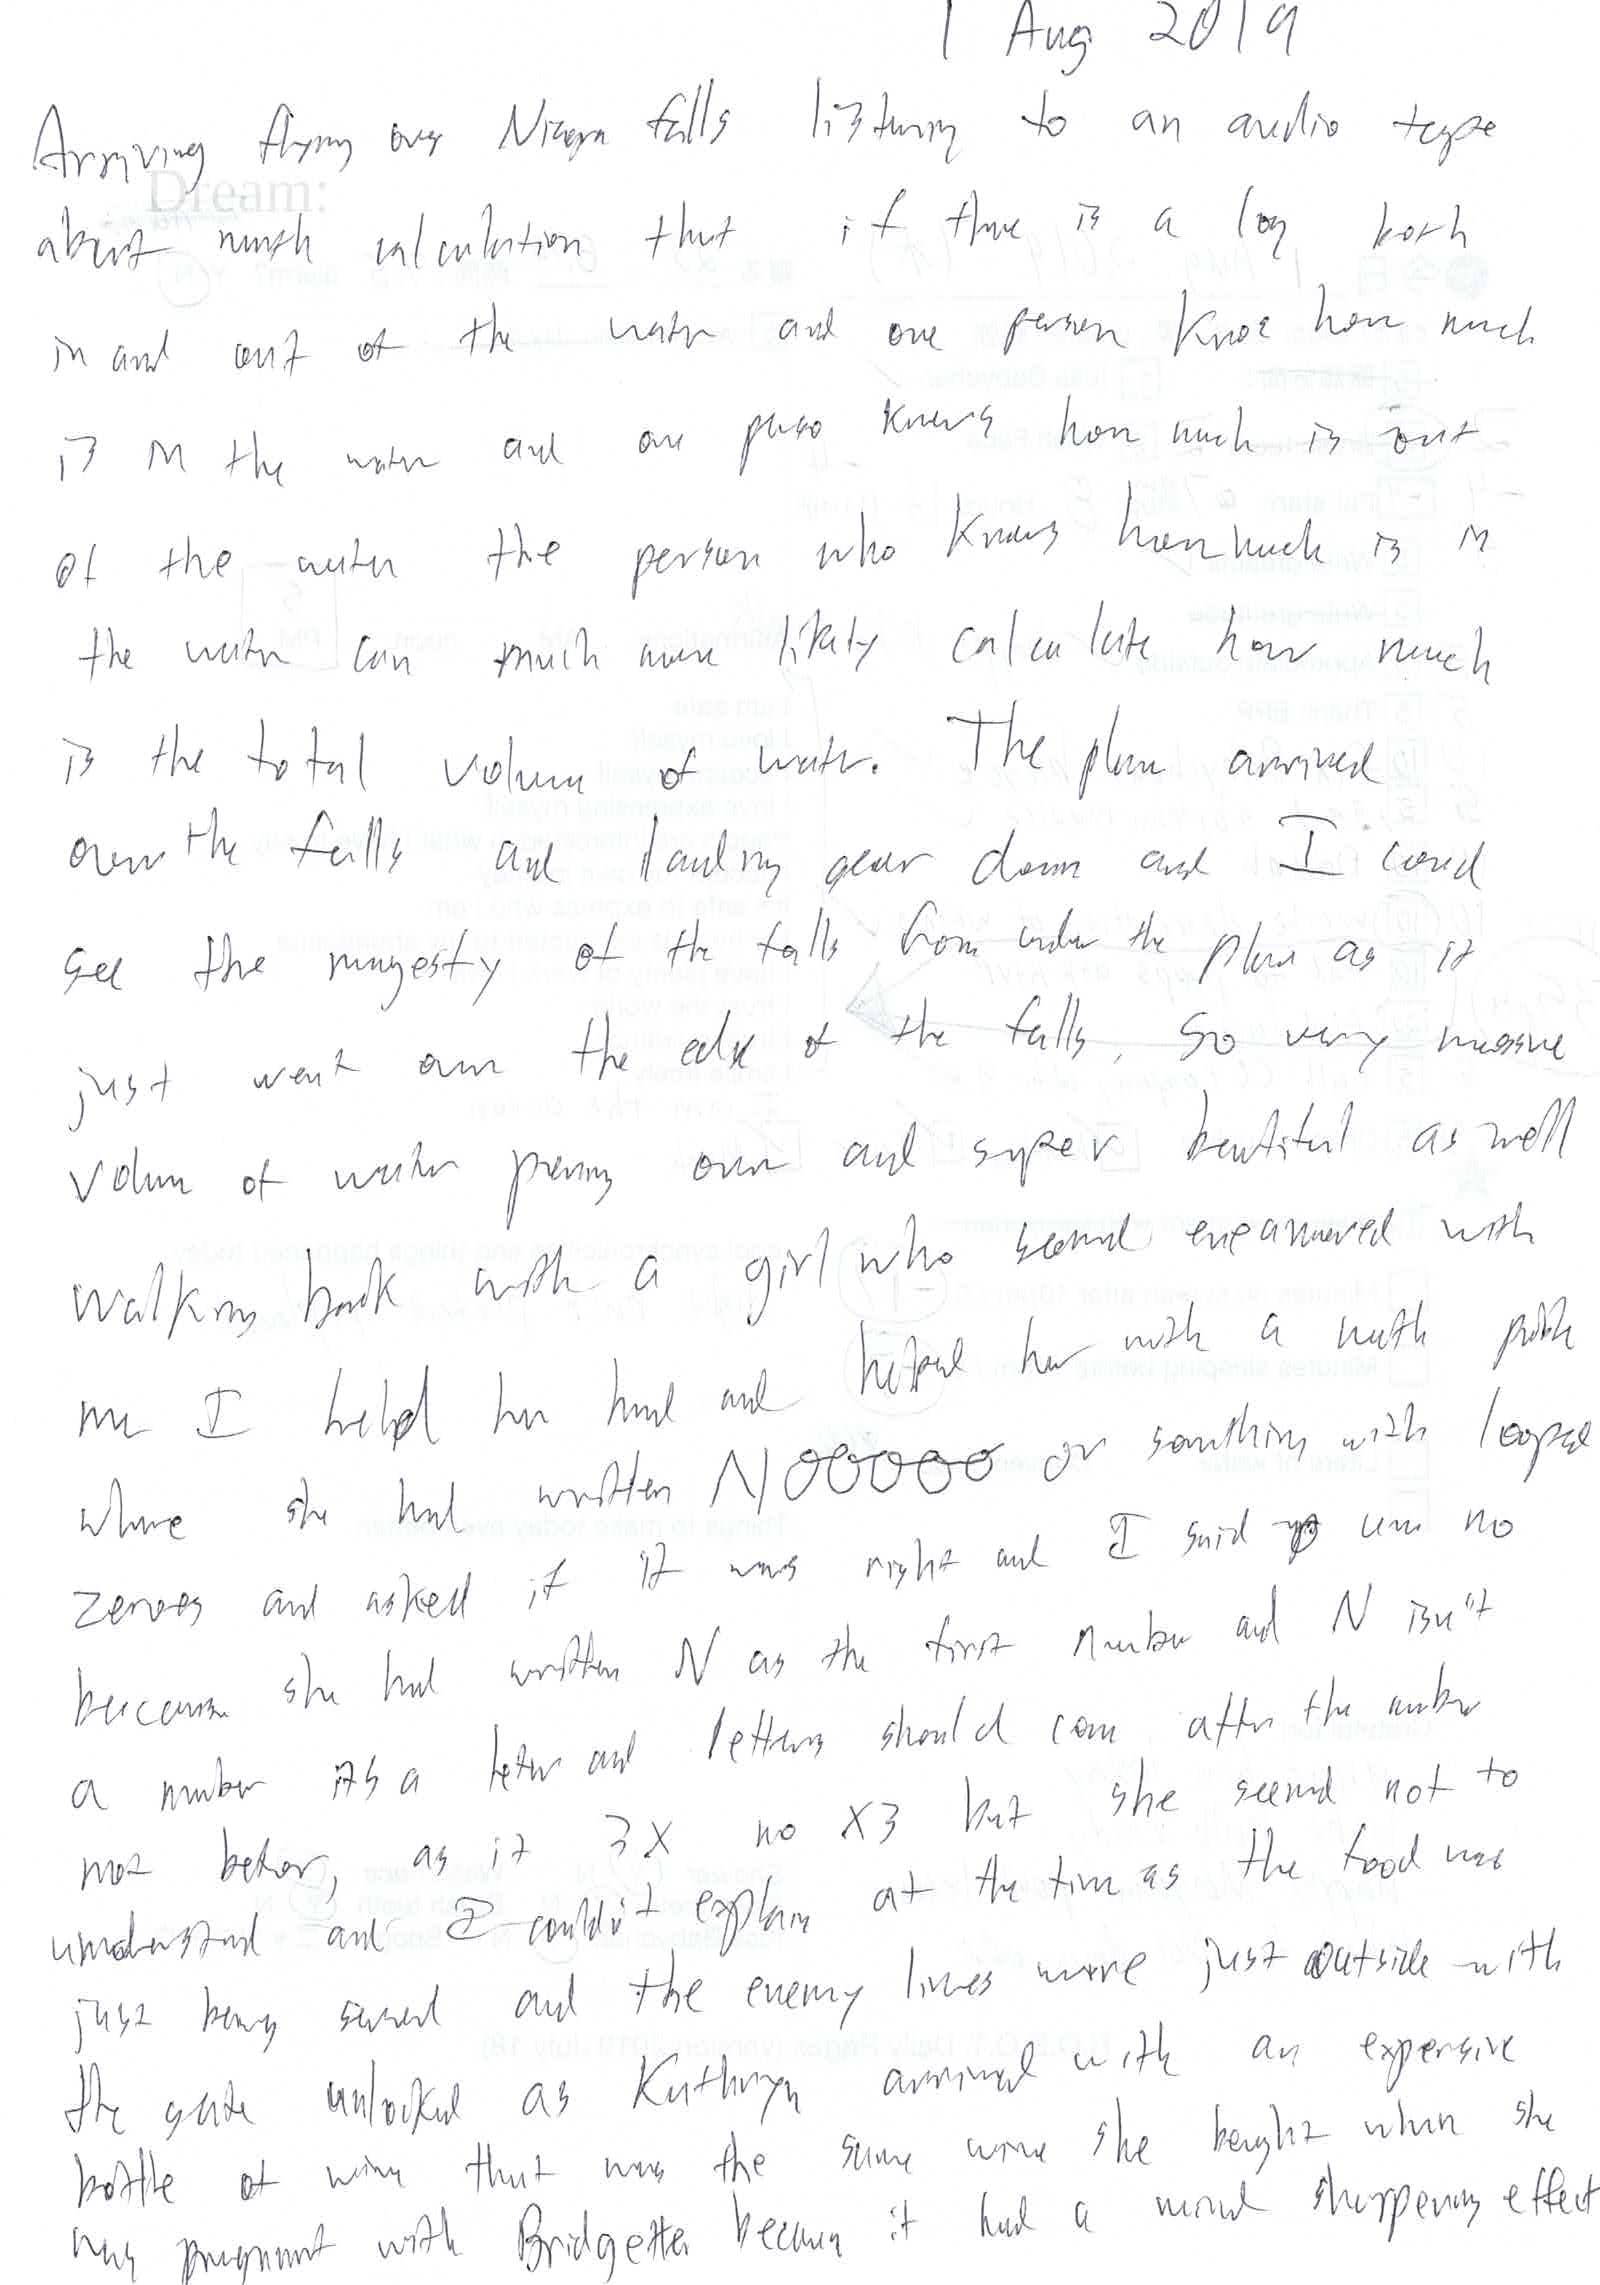 1 Aug 2019
Arriving flying over Niagra falls listening to an audio tape
about math calculation that if there is a log both
in and out of the water and one person knos how much
is in the water and one perso knows how much is out
of the water the person who knows how much is in
the water can much more likely calculate how much
is the total volume of water. The plane arrived
over the falls and landing gear down and I coud
see the magesty of the falls from under the plane as it
just went over the edge of the falls, so very massive
volume of water pouring over and super beautiful as well
walking back with a girl who seemed eneamored with
me I helpd her hand and helped her with a math problem
where she had written N000000 or something with looped
zeroes and asked if it was right and I said um no
beccause she had written N as the first number and N isn't
a number its a letter and letters should come after the number
not before, as if 3X no X3 but she seemed not to
understand and I couldn't explain at the time as the food was
just being served and the enemy lines were just outside with
the gate unlocked as Kathryn arrived with an expensive
bottle of wine that was the same wine she bought when she
was pregnant with Bridgette because it had a mind sharppening effect
Dream: